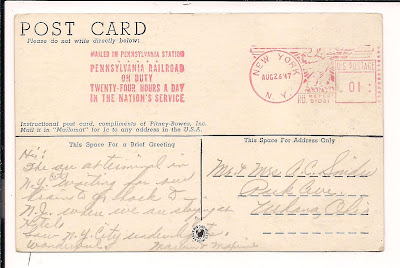 POST CARD
Please do not write directly below:
MAILED IN PENNSYLVANIA STATION
PENNSYLVANIA RAILROAD
ON DUTY
TWENTY-FOUR HOURS A DAY
IN THE NATION'S SERVICE.
NEW YORK
AUG 26 '47
N.Y.
U.S. POSTAGE
.01
Instructional post card, compliments of Pitney-Bowes, Inc.
Mail it in "Mailomat" for 1c to any address in the U.S.A.
This Space For a Brief Greeting
Hi!
at terminal in
N.Y. City waiting for our
train to go back to
N.J. where we are staying at
Hotel
Saw N.Y. City
Wonderful
Maxine
This Space For Address Only
Mr & Mrs
Park Ave